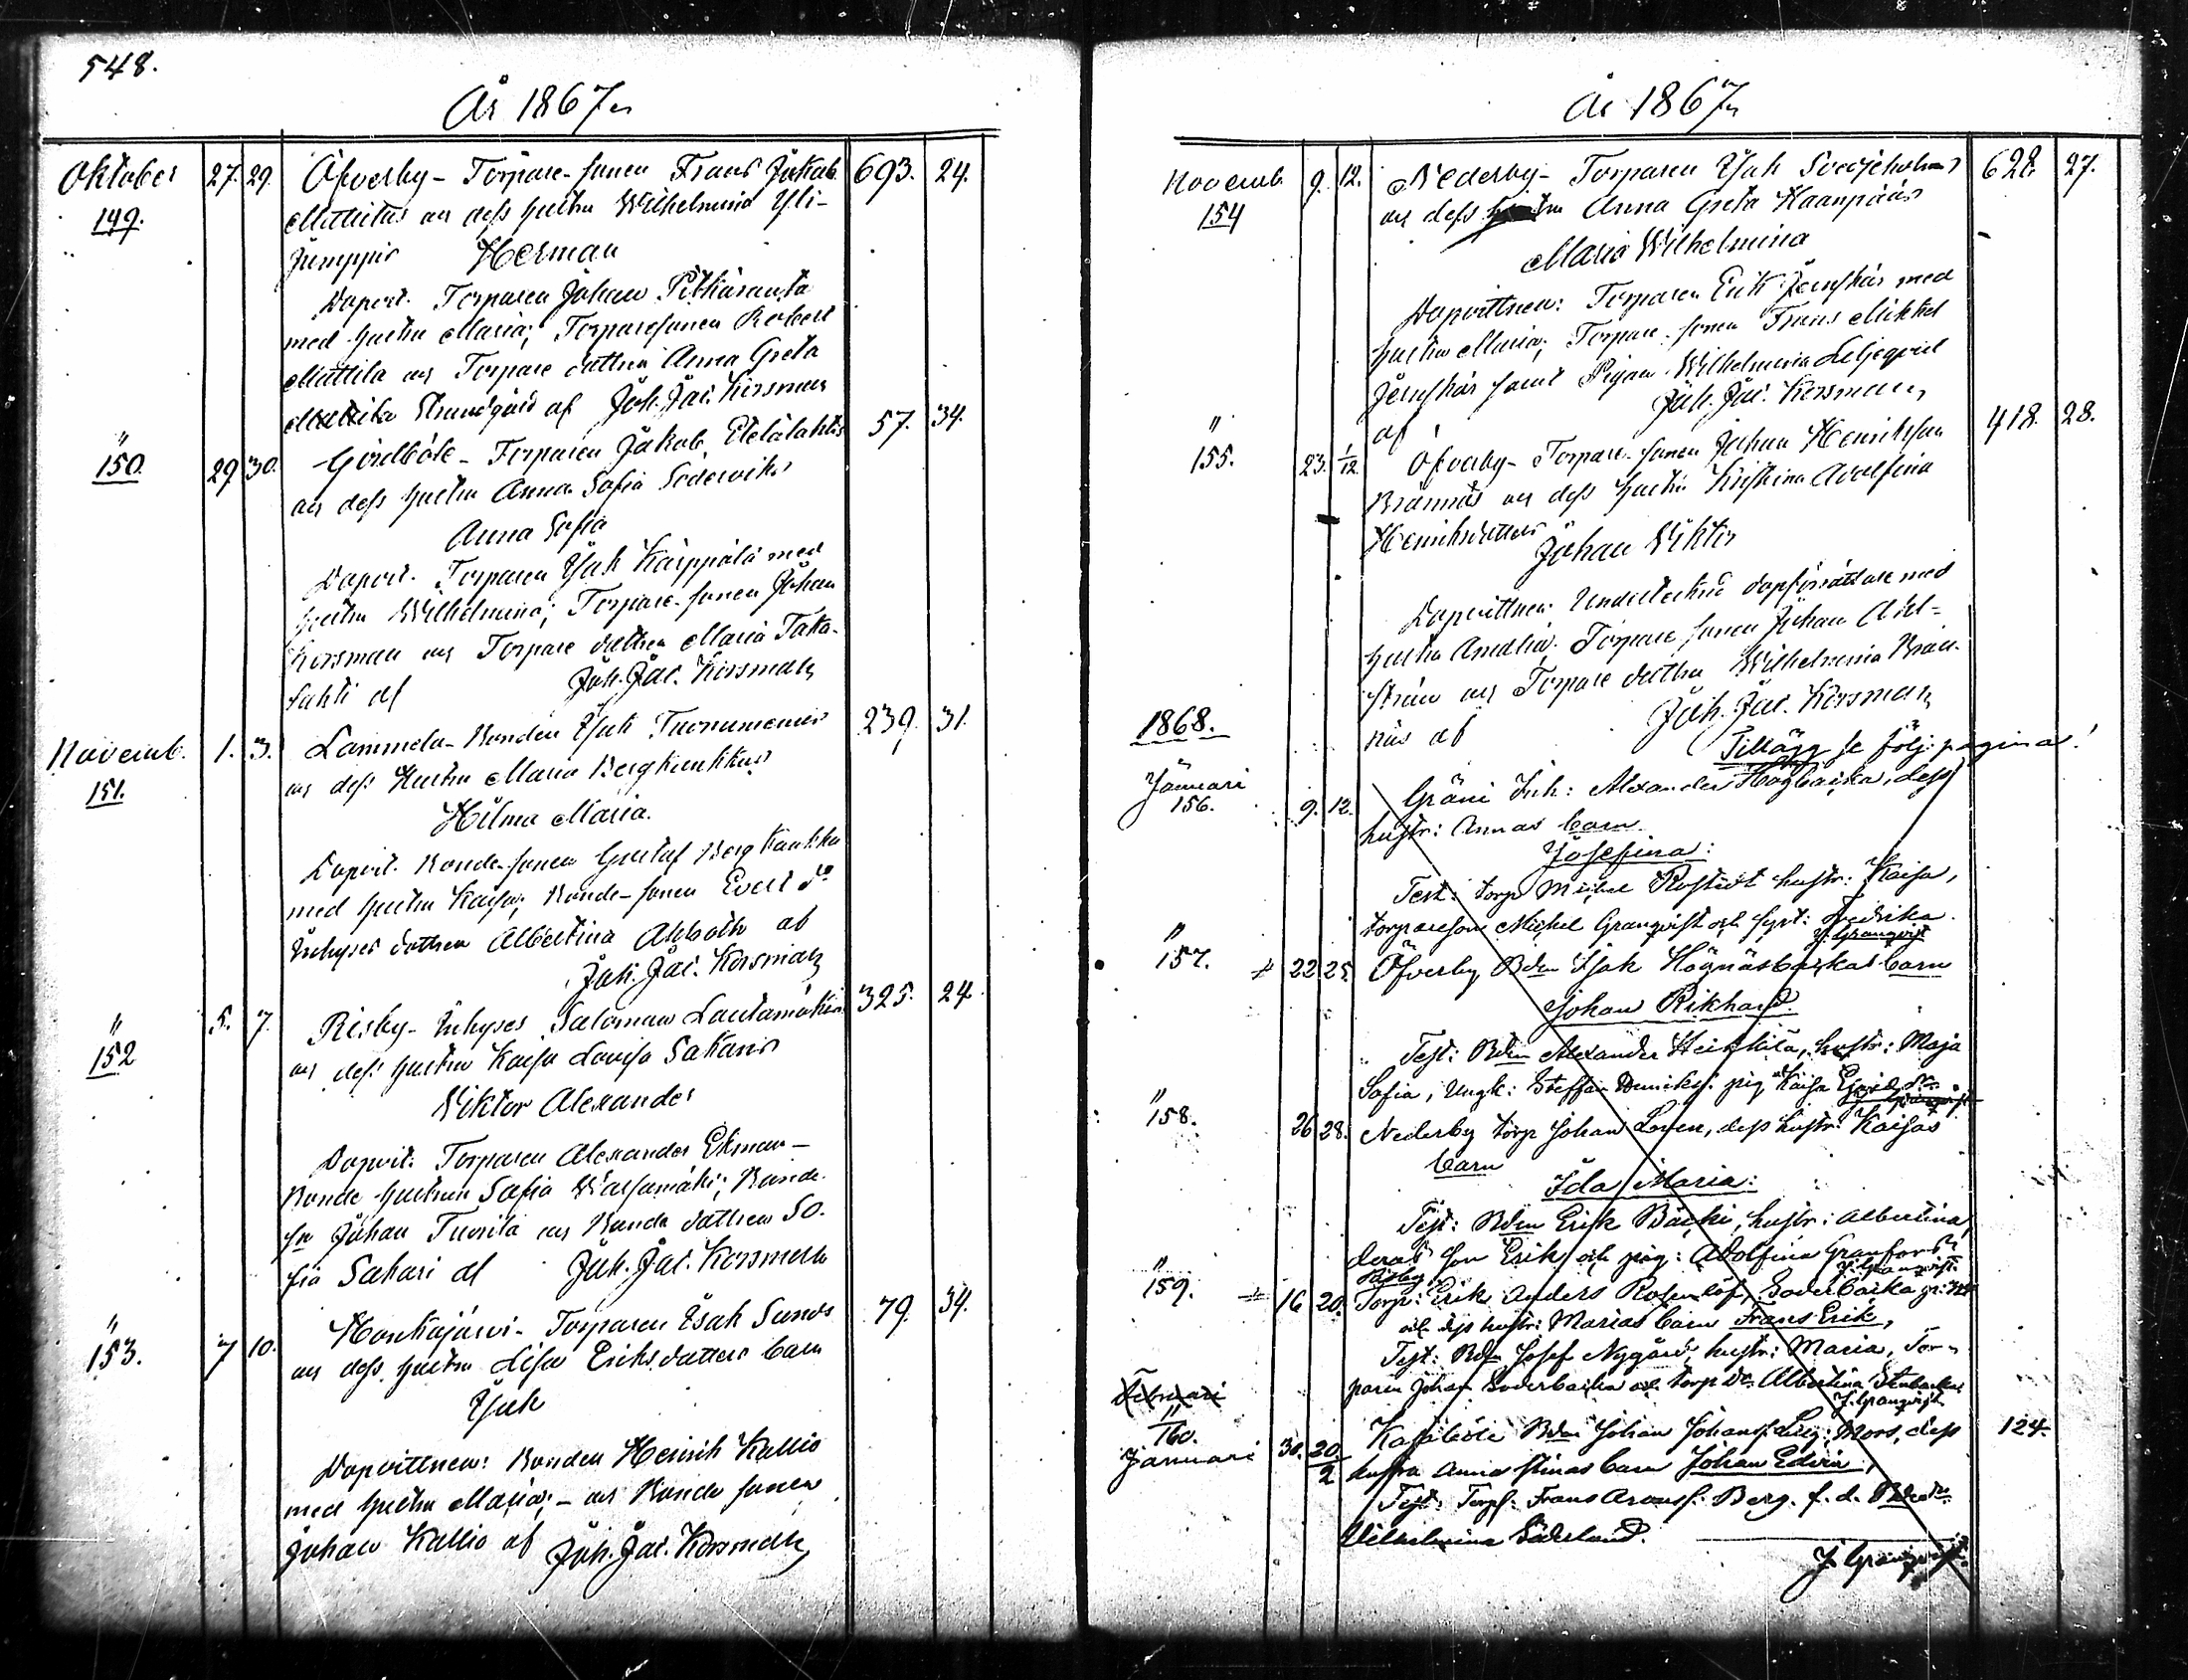 548.
År 1867
Oktober 27. 29. Öfverby - Torpare-sonen Frans Jakob 693. 24.
149. Mattitas o. dess hustru Wilhelmina Yli-
Jumppis Herman
Dopvit. Torparen Johan Pitkäranta
med hustru Maria; Torparesonen Robert
Mattila o. Torpare dottren Anna Greta
Strandgård af Joh. Jac. Korsman
" 150. 29 30. Girilböle - Torparen Jakob Etelälahtis 57. 34.
o. dess hustru Anna Sofia Söderviks
Anna Sofia
Dopvit. Torparen Isak Karppala med
hustru Wilhelmina; Torpare-sonen Johan
Korsman o. Torpare dottren Maria Taka-
lahti af Joh. Jac. Korsman
Novemb. 1. 3. Lammela - Bonden Isak Tuorumemis 239. 31.
151. o. dess Hustru Maria Bergkaukkas
Hilma Maria.
Dopvit. Bonde-sonen Gustaf Bergkaukka
med hustru Kaisa; Bonde-sonen Evert d:o
Inhyses dottren Albertina Ahlbäck af
Joh. Jac. Korsman
" 152 5. 7. Risby - Inhyses Saloman Lautamäkis 325. 24
o. dess hustru Kaisa Lovisa Sakaris
Viktor Alexander
Dopvit: Torparen Alexander Ekman -
Bonde hustrun Sofia Walsamäki; Bonde
sn Johan Tuorila o. Bonde dottren So-
fia Sakari af Joh. Jac. Korsman
" 153. 7 10. Honkajärvi - Torparen Isak Sunds 79. 34.
o. dess hustru Lisa Eriksdotters barn
Isak
Dopvittnen: Bonden Henrik Kallio
med hustru Maria; - o. Bonde sonen
Johan Kallio af Joh. Jac. Korsman
År 1867
Novemb. 9. 12. Nederby - Torparen Isak Svedjeholms 628. 27.
154 o. dess hustru Anna Greta Kaanpääs
Maria Wilhelmina
Dopvittnen: Torparen Erik Jernskär med
hustru Maria; Torpare-sonen Frans Mikkel
Jernskär samt Pigan Wilhelmina Liljeqvist
af Joh. Jac. Korsman
" 155. 23. 1/12. Öfverby - Torpare-sonen Johan Henriksson 418. 28.
Brännäs o. dess hustru Kristina Adolfina
Henriksdotters Johan Viktor
Dopvittnen: Undertecknad dopförrättare med
hustru Amalia. Torpare sonen Johan Ahl-
ström o. Torpare dottren Wilhelmina Brän-
näs af Joh. Jac. Korsman
1868. (Tillägg se följ: pagina!
Januari 156. 9. 12. Gräni Inh: Alexander Högbacka, dess
hustr: Annas barn
Josefina:
Test: torp Michel Rostedt hustr: Kaisa,
torpareson Michel Granqvist och syst: Fredrika.
J. Granqvist
" 157. 22 25. Öfverby Bdn Isak Högnäsbackas barn
Johan Rikhard.
Test: Bdn Alexander Heikkilä, hustr: Maja
Sofia, Ungk: Steffan Henrikss. pig Kaisa
" 158. 26 28. Nederby torp Johan Loren, dess hustr: Kaisas
barn
Ida Maria:
Test: Bdn Erik Bäcki, hustr: Albertina,
deras son Erik och pig: Adolfina Granfors
J. Granqvist.
" 159. 16 20. Risby
Torp: Erik Anders Rosenlöf, Söderbacka
och dess hustr: Marias barn Frans Erik,
Test: Bdn Josef Nygård, hustr: Maria, Tor-
paren Johan Söderbacka och torp dr. Albertina Stenbacka
J. Granqvist
Februari
" 160. Januari 30. 20/2 Kasaböle Bdn Johan Johanss. Lieg: Mors, dess 124.
hustru Anna Stinas barn Johan Edvin,
Test: Torps: Frans Aronss. Berg. f. d.
Wilhelmina Söderlund.
J. Granqvist